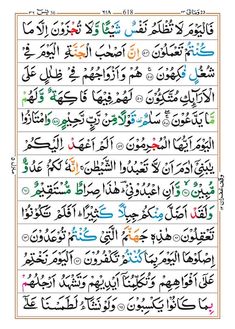 618
فَالْيَوْمَ لَا تُظْلَمُ نَفْسٌ شَيْـًٔا وَّلَا تُجْزَوْنَ اِلَّا مَا
كُنْتُمْ تَعْمَلُوْنَ ۝ اِنَّ اَصْحٰبَ الْجَنَّةِ الْيَوْمَ فِيْ
شُغُلٍ فٰكِهُوْنَ ۝ هُمْ وَاَزْوَاجُهُمْ فِيْ ظِلٰلٍ عَلَى
الْاَرَآئِكِ مُتَّكِـُٔوْنَ ۝ لَهُمْ فِيْهَا فَاكِهَةٌ وَّلَهُمْ
مَّا يَدَّعُوْنَ ۝ سَلٰمٌ قَوْلًا مِّنْ رَّبٍّ رَّحِيْمٍ ۝
وَامْتَازُوا الْيَوْمَ اَيُّهَا الْمُجْرِمُوْنَ ۝ اَلَمْ اَعْهَدْ اِلَيْكُمْ
يٰبَنِيْٓ اٰدَمَ اَنْ لَّا تَعْبُدُوا الشَّيْطٰنَ اِنَّهٗ لَكُمْ عَدُوٌّ
مُّبِيْنٌ ۝ وَّاَنِ اعْبُدُوْنِيْ هٰذَا صِرَاطٌ مُّسْتَقِيْمٌ ۝
وَلَقَدْ اَضَلَّ مِنْكُمْ جِبِلًّا كَثِيْرًا اَفَلَمْ تَكُوْنُوْا
تَعْقِلُوْنَ ۝ هٰذِهٖ جَهَنَّمُ الَّتِيْ كُنْتُمْ تُوْعَدُوْنَ ۝
اِصْلَوْهَا الْيَوْمَ بِمَا كُنْتُمْ تَكْفُرُوْنَ ۝ اَلْيَوْمَ نَخْتِمُ
عَلٰٓى اَفْوَاهِهِمْ وَتُكَلِّمُنَآ اَيْدِيْهِمْ وَتَشْهَدُ اَرْجُلُهُمْ
بِمَا كَانُوْا يَكْسِبُوْنَ ۝ وَلَوْ نَشَآءُ لَطَمَسْنَا عَلٰٓى